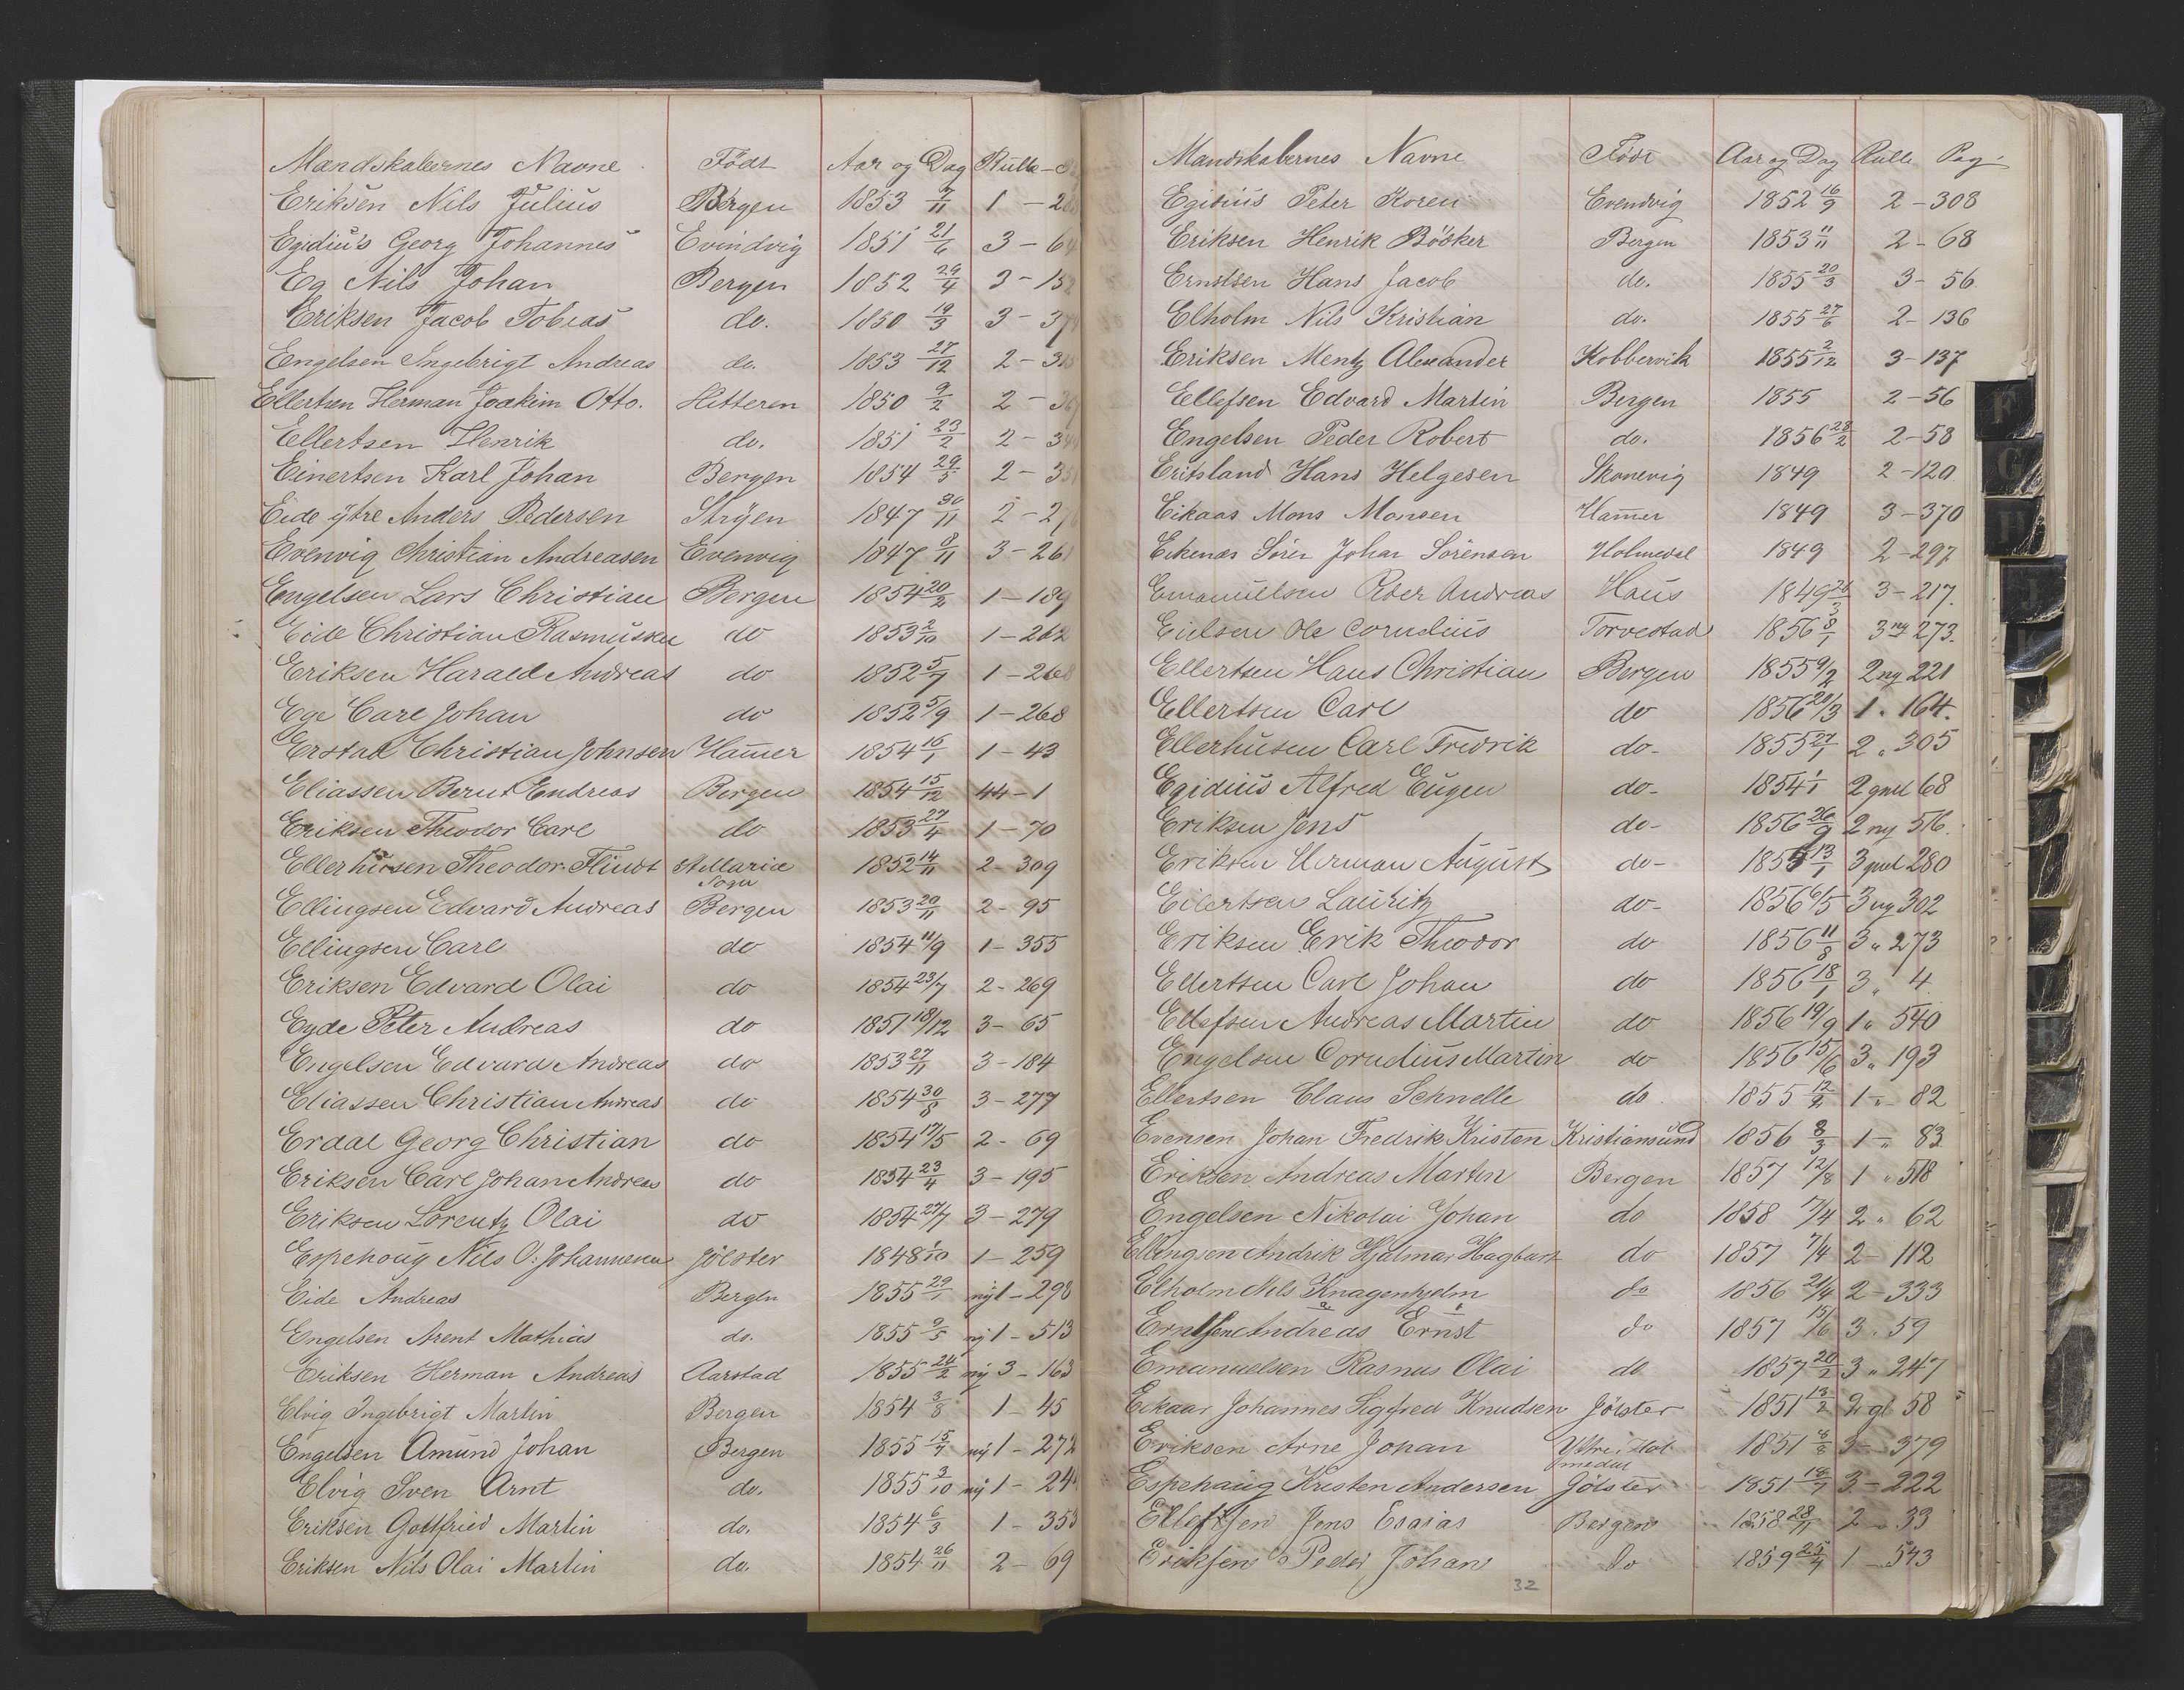 Mandskabernes Navne Födt Aar og Dag Rulle
Eriksen Nils Julius Bergen 1853 7/11 1 - 2
Egidius Georg Johannes Evindvig 1851 21/6 3 - 64
Eg Nils Johan Bergen 1852 29/4 3 - 152
Eriksen Jacob Tobias do. 1850 19/3 3 - 37
Engelsen Ingebrigt Andreas do. 1853 27/12 2 - 3
Ellertsen Herman Joakim Otto. Hitteren 1850 9/2 2 - 36
Ellertsen Henrik do. 1851 23/2 2 - 34
Einertsen Karl Johan Bergen 1854 29/5 2 - 33
Eide ytre Anders Pedersen Stryen 1847 30/11 2 - 27
Evenvig Christian Andreasen Evenvig 1847 8/11 3 - 261
Engelsen Lars Christian Bergen 1854 20/2 1 - 189
Eide Christian Rasmussen do 1853 2/10 1 - 262
Eriksen Harald Andreas do 1852 5/7 1 - 268
Ege Carl Johan do 1852 5/9 1 - 268
Erstad Christian Johnsen Hamer 1854 16/1 1 - 43
Eliassen Bernt Endreas Bergen 1854 15/12 44 - 1
Eriksen Theodor Carl do 1853 27/4 1 - 70
Ellerhusen Theodor Flindt St Mariæ Sogn 1852 14/11 2 - 309
Ellingsen Edvard Andreas Bergen 1853 20/11 2 - 95
Ellingsen Carl do 1854 11/9 1 - 355
Eriksen Edvard Olai do 1854 23/7 2 - 269
Eyde Peter Andreas do 1851 18/12 3 - 65
Engelsen Edvard Andreas do 1853 27/11 3 - 184
Eliassen Christian Andreas do 1854 30/8 3 - 277
Erdal Georg Christian do 1854 17/5 2 - 69
Eriksen Carl Johan Andreas do 1854 23/4 3 - 195
Eriksen Lorentz Olai do 1854 27/7 3 - 279
Espehoug Nils O. Johannesen Jölster 1848 1/10 1 - 259
Eide Andreas Bergen 1855 29/1 ny 1 - 298
Engelsen Arent Mathias do. 1855 9/5 ny 1 - 513
Eriksen Herman Andreas Aarstad 1855 24/2 ny 3 - 163
Elvig Ingebrigt Martin Bergen 1854 3/8 1 - 45
Engelsen Amund Johan Bergen 1855 15/7 ny 1 - 272
Elvig Sven Arnt do. 1855 3/10 ny 1 - 24
Eriksen Gottfried Martin do. 1854 6/3 1 - 353
Eriksen Nils Olai Martin do. 1854 26/11 2 - 69
Mandskabernes Navne Födt Aar og Dag Rulle Pag:
Egidius Peter Koren Evendvig 1852 16/9 2 - 308
Eriksen Henrik Bösker Bergen 1853 11/11 2 - 68
Ernstsen Hans Jacob do. 1855 20/3 3 - 56
Elholm Nils Kristian do. 1855 27/6 2 - 136
Eriksen Mentz Alexander Kobbervik 1855 2/12 3 - 137
Ellefsen Edvard Martin Bergen 1855 2 - 56
Engelsen Peder Robert do. 1856 28/2 2 - 58
Eritsland Hans Helgesen Skonevig 1849 2 - 120
Eikaas Mons Monsen Hamer 1849 3 - 370
Eikenæs Sören Johan Sörensen Holmedal 1849 2 - 297
Emanuelsen Peder Andreas Haus 1849 26/3 3 - 217.
Eielsen Ole Cornelius Torvestad 1856 8/1 3 ny 273.
Ellertsen Hans Christian Bergen 1855 9/2 2 ny 221
Ellertsen Carl do 1856 21/3 1 " 164.
Ellerhusen Carl Fredrik do- 1855 27/1 2 " 305
Egidius Alfred Eugen do- 1854 1/1 2 gml 68
Eriksen Jens do- 1856 26/9 2 ny 516.
Eriksen Herman August do- 1855 13/1 3 gml 280
Eilertsen Lauritz do- 1856 6/5 3 ny 302
Eriksen Erik Theodor do 1856 11/8 3 " 273
Ellertsen Carl Johan do 1856 18/1 3 " 4
Ellefsen Andreas Martin do 1856 19/9 1 " 540
Engelsen Cornelius Martin do 1856 15/6 3 " 193
Ellertsen Claus Schnelle do 1855 12/11 1 - " 82
Evensen Johan Fredrik Kristen Kristiansund 1856 8/3 1 - " 83
Eriksen Andreas Martin Bergen 1857 12/8 1 " 518
Engelsen Nikolai Johan do 1858 7/4 2 " 62
Ellingsen Andrik Hjalmar Hagbart do 1857 7/4 2 - 112
Elholm Nils Knagenhjelm do 1856 21/4 2 - 333
Ernstsen Andreas Ernst do 1857 15/6 3 " 59
Emanuelsen Rasmus Olai do 1857 20/2 3 " 247
Eikaas Johannes Sigfred Knudsen Jölster 1851 13/2 2 gl 58
Eriksen Arne Johan Yttre Holmedal 1851 8/8 3 - 379
Espehaug Kristen Andersen Jölster 1851 18/7 3 - 222
Ellefsen Jens Esaias Bergen 1858 28/11 2 - 33
Eriksen Peder Johan do 1859 25/4 1 - 543
32
F
G
H
J
K